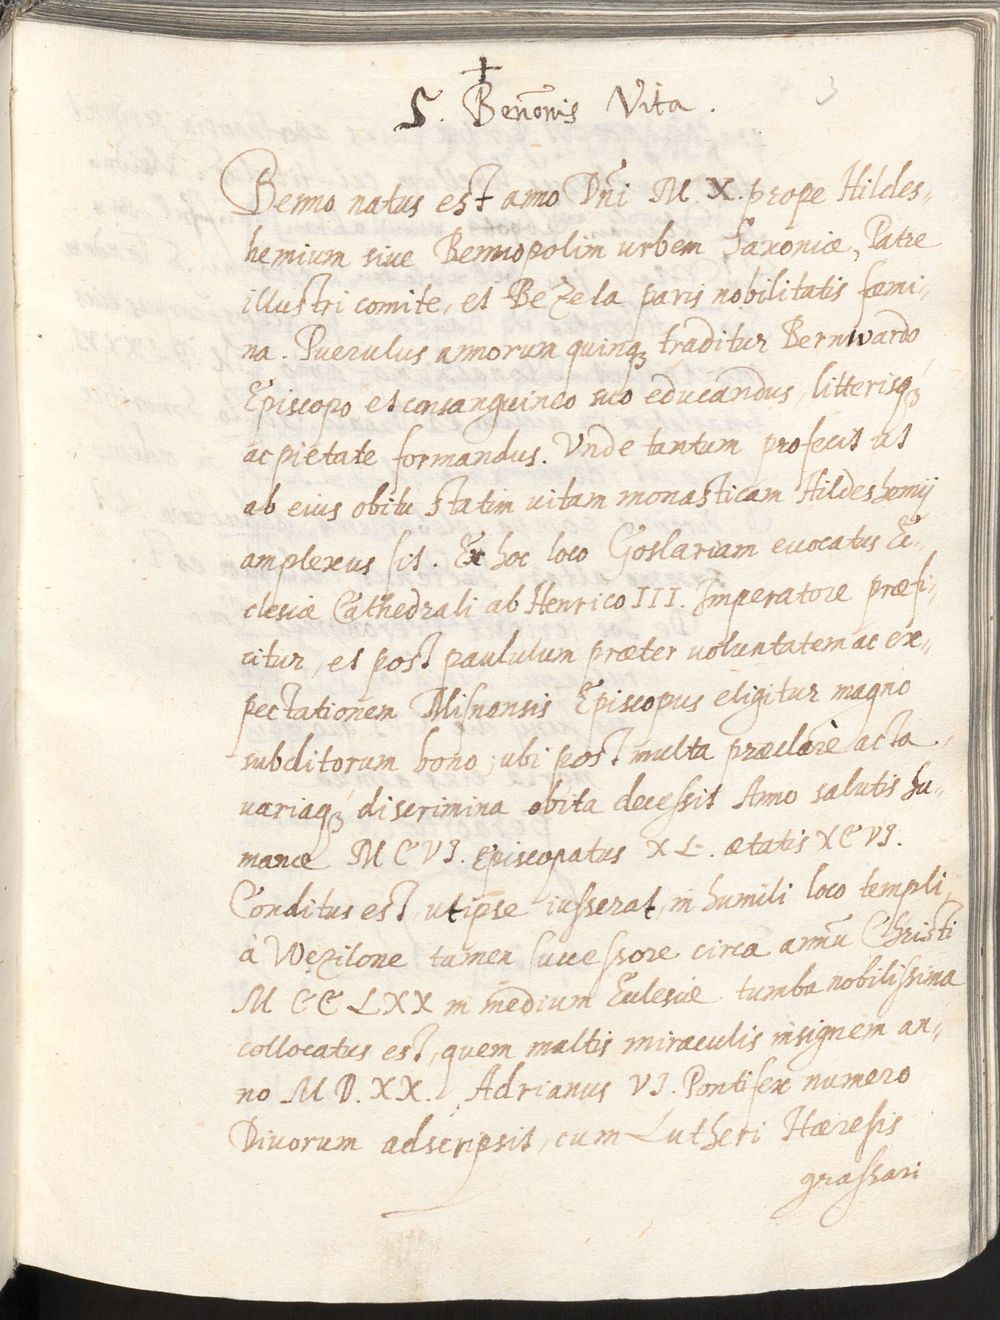 †
3
S. Beñonis Vita.
Benno natus est anno Dñi M X. prope Hildes-
hemium siue Bennopolim urbem Saxoniæ, Patre
illustri comite, et Bezela paris nobilitatis fœmi-
na. Puerulus annorum quinq3 traditur Bernwardo
Episcopo et consanguineo suo educandus, litterisq3
ac pietate formandus. Vnde tantum profecit ut
ab eius obitu statim uitam monasticam Hildeshemij
amplexus sit. Ex hoc loco Goslariam euocatus Ec-
clesiæ Cathedrali ab Henrico III. Imperatore præfi-
citur, et post paululum præter uoluntatem ac ex-
pectationem Misnensis Episcopus eligitur magno
subditorum bono; ubi post multa præclarè acta
uariaq3 discrimina obita decessit Anno salutis hu-
manæ M C VI. Episcopatus XL. ætatis XCVI.
Conditus est, ut ipse iusserat, in humili loco templi,
à Wezilone tamen successore circa annũ Christi
M CC LXX in medium Eclesiæ tumba nobilissima
collocatus est, quem multis miraculis insignem an-
no M D. XX. Adrianus VI. Pontifex numero
Diuorum adscripsit, cum Lutheri Hæresis
grassari